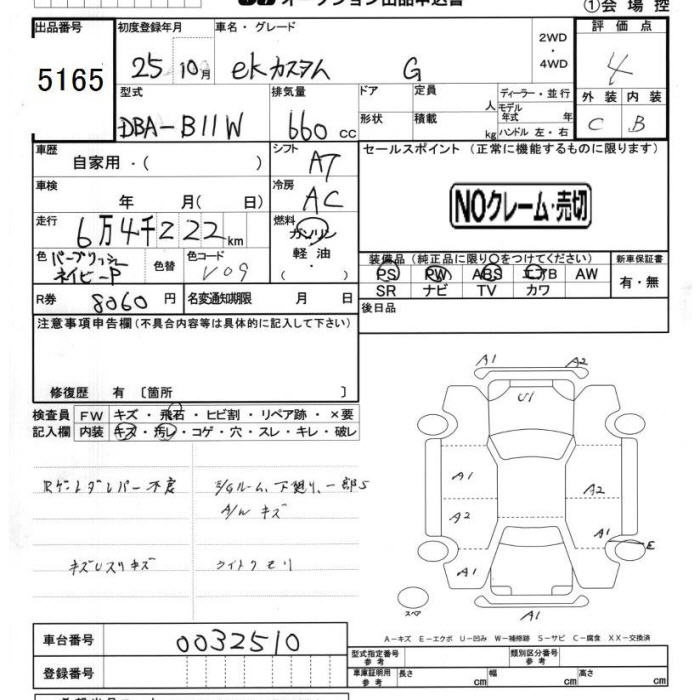 オークション出品申込書 ①会場控
出品番号 初度登録年月 車名・グレード 2WD・4WD 評価点
5165 25 10月 ekカスタム G 4
型式 排気量 ドア 定員 人 ディーラー・並行 外装 内装
DBA-B11W 660cc 形状 積載 kg モデル年式 年 ハンドル 左・右 C B
車歴 自家用・( ) シフト AT セールスポイント(正常に機能するものに限ります)
車検 年 月( 日) 冷房 AC NOクレーム・売切
走行 6万4千222km 燃料 ガソリン
軽油・( )
色 パープリッシュネイビーP 色替 色コード V09
装備品(純正品に限り○をつけてください) 新車保証書
PS PW ABS エアB AW 有・無
SR ナビ TV カワ
R券 8060円 名変通知期限 月 日 後日品
注意事項申告欄(不具合内容等は具体的に記入して下さい)
修復歴 有 〔箇所 〕
検査員 FW キズ・飛石・ヒビ割・リペア跡・×要
記入欄 内装 キズ・汚レ・コゲ・穴・スレ・キレ・破レ
A1 A2
U1
Rゲートダレパー不良 E/Gルーム、下廻り、一部S
A/W キズ
A1 A2
A2 A1 E
キズU スリキズ ライトクモリ
A1
スペア A1
A-キズ E-エクボ U-凹み W-補修跡 S-サビ C-腐食 XX-交換済
車台番号 0032510
型式指定番号 参考 類別区分番号 参考
登録番号 車庫証明用 参考 長さ cm 幅 cm 高さ cm